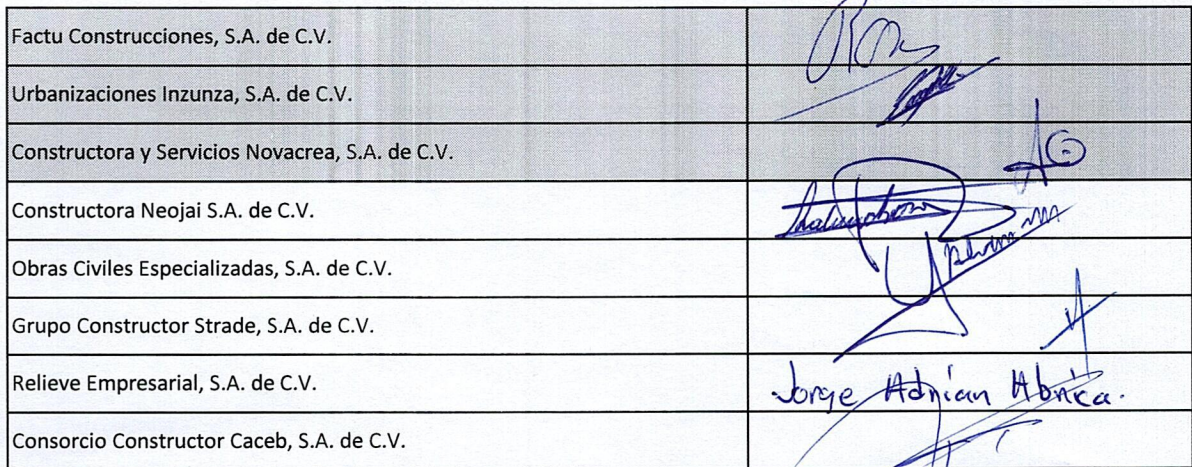 Factu Construcciones, S.A. de C.V.
Urbanizaciones Inzunza, S.A. de C.V.
Constructora y Servicios Novacrea, S.A. de C.V.
Constructora Neojai S.A. de C.V.
Obras Civiles Especializadas, S.A. de C.V.
Grupo Constructor Strade, S.A. de C.V.
Relieve Empresarial, S.A. de C.V.
Jorge Adrian Abrica.
Consorcio Constructor Caceb, S.A. de C.V.